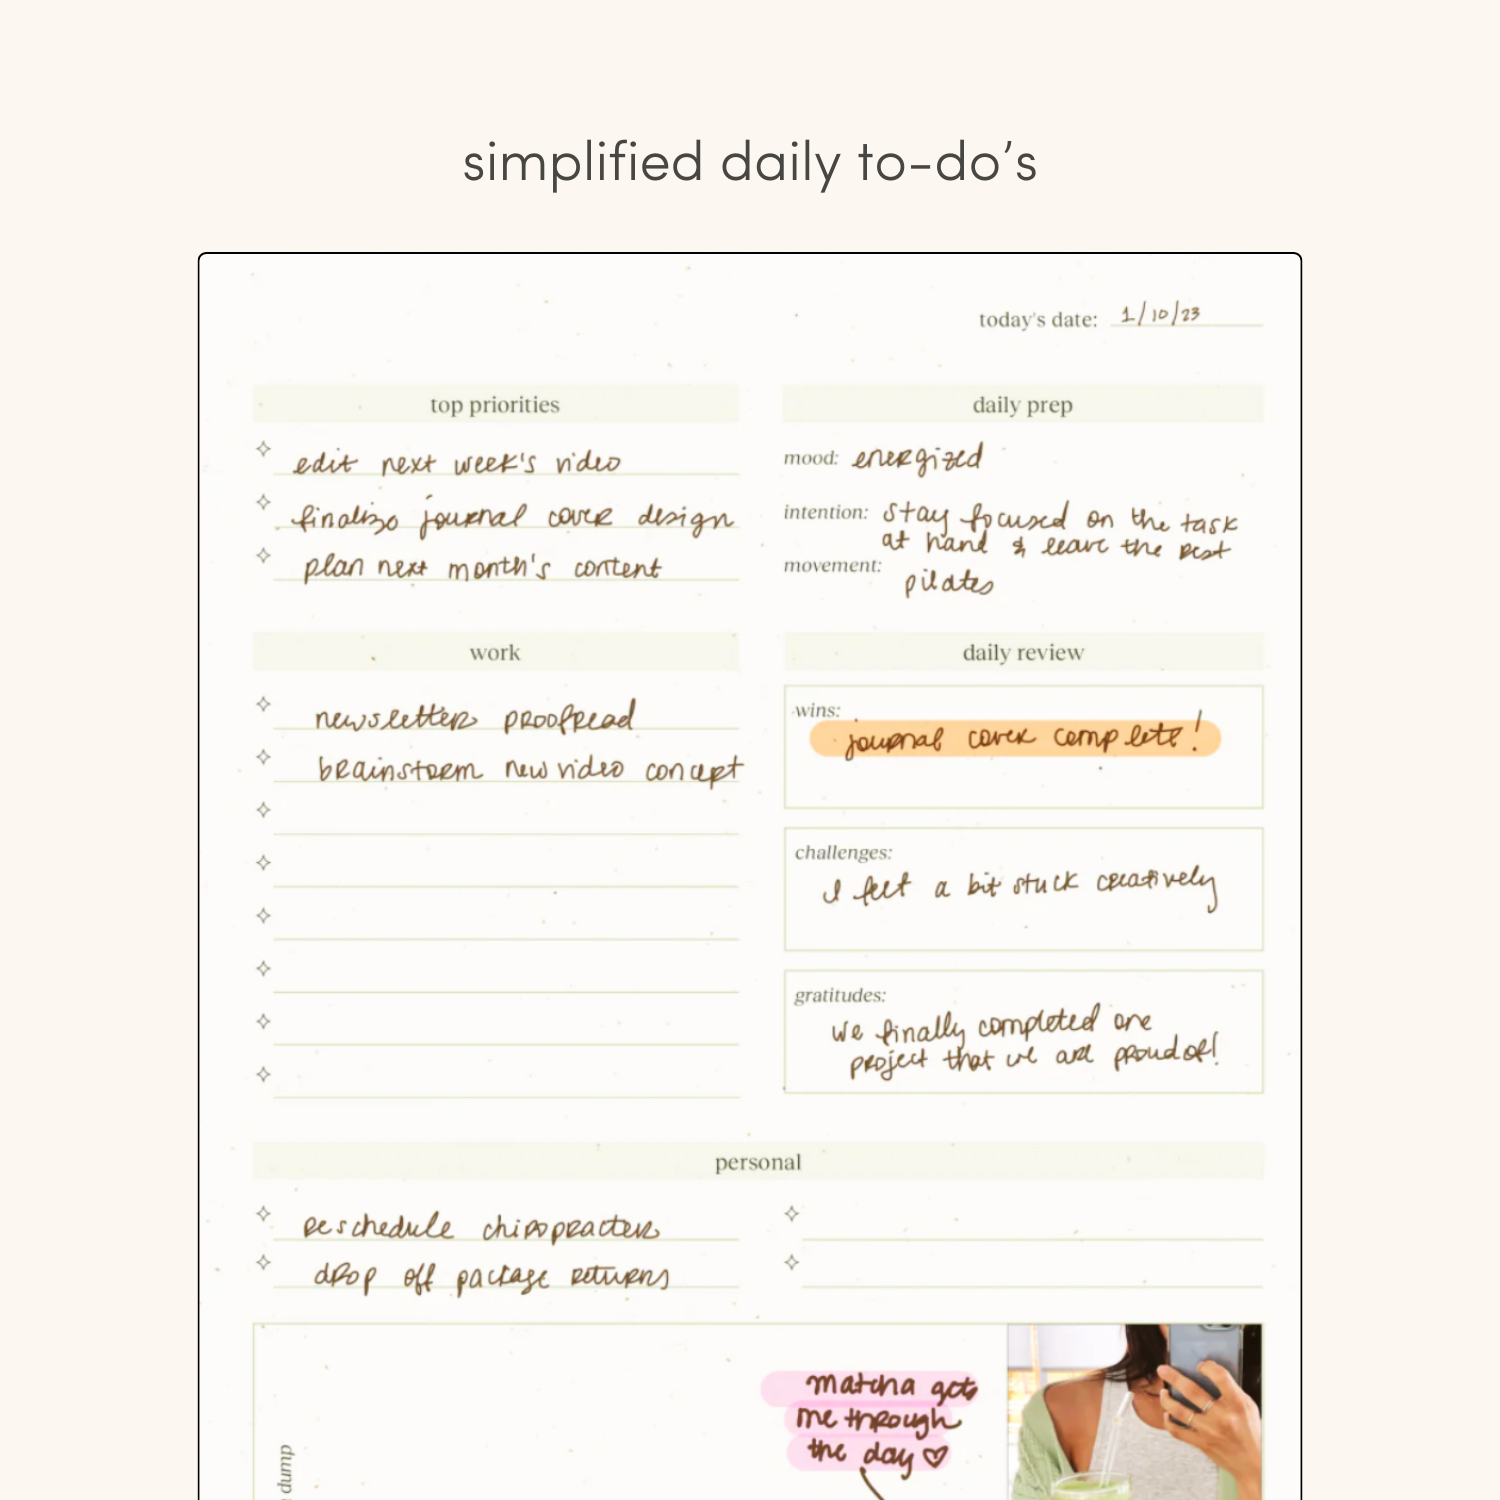 simplified daily to-do's
today's date: 1/10/23
top priorities
edit next week's video
finalize journal cover design
plan next month's content
daily prep
mood: energized
intention: stay focused on the task
at hand & leave the rest
movement:
pilates
work
newsletter proofread
brainstorm new video concept
daily review
wins:
journal cover complete!
challenges:
I felt a bit stuck creatively
gratitudes:
we finally completed one
project that we are proud of!
personal
reschedule chiropractor
drop off package returns
matcha gets
me through
the day ♡
dump